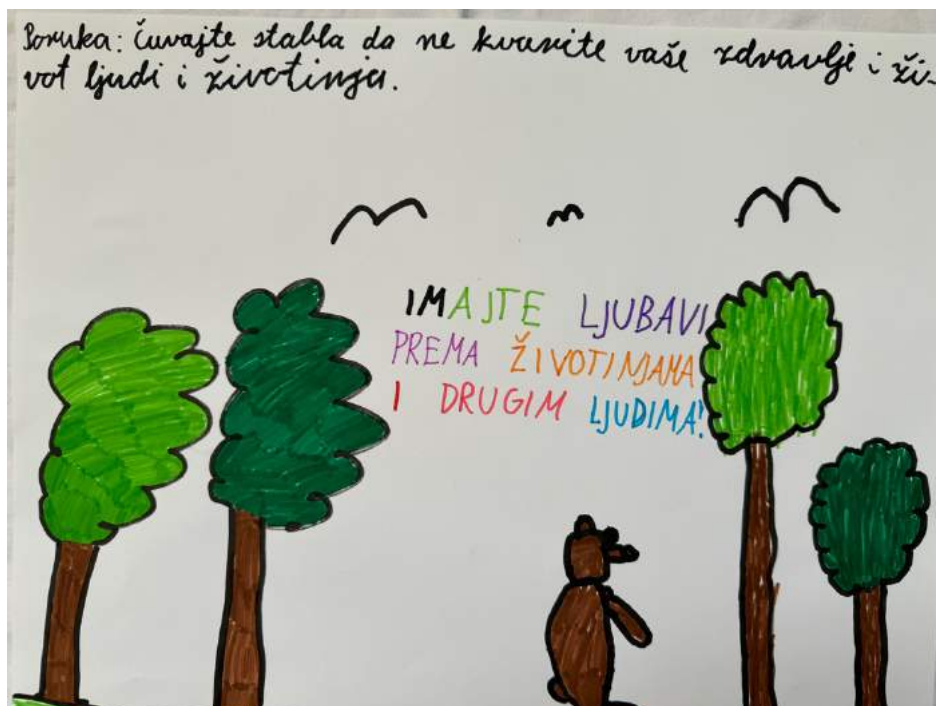 Poruka: Čuvajte stabla da ne kvarite vaše zdravlje i ži-
vot ljudi i životinja.
IMAJTE LJUBAVI
PREMA ŽIVOTINJAMA
I DRUGIM LJUDIMA!